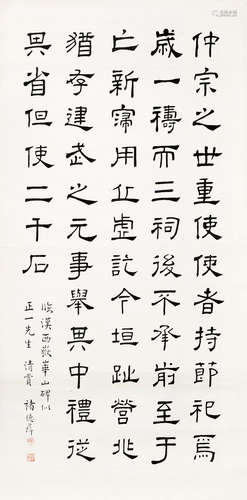 仲宗之世重使使者持節祀焉
歲一禱而三祠後不承前至于
亡新寖用丘虛訖今垣趾營兆
猶存建武之元事舉其中禮從
其省但使二千石
臨漢西嶽華山碑似
正一先生 清賞 褚德彝